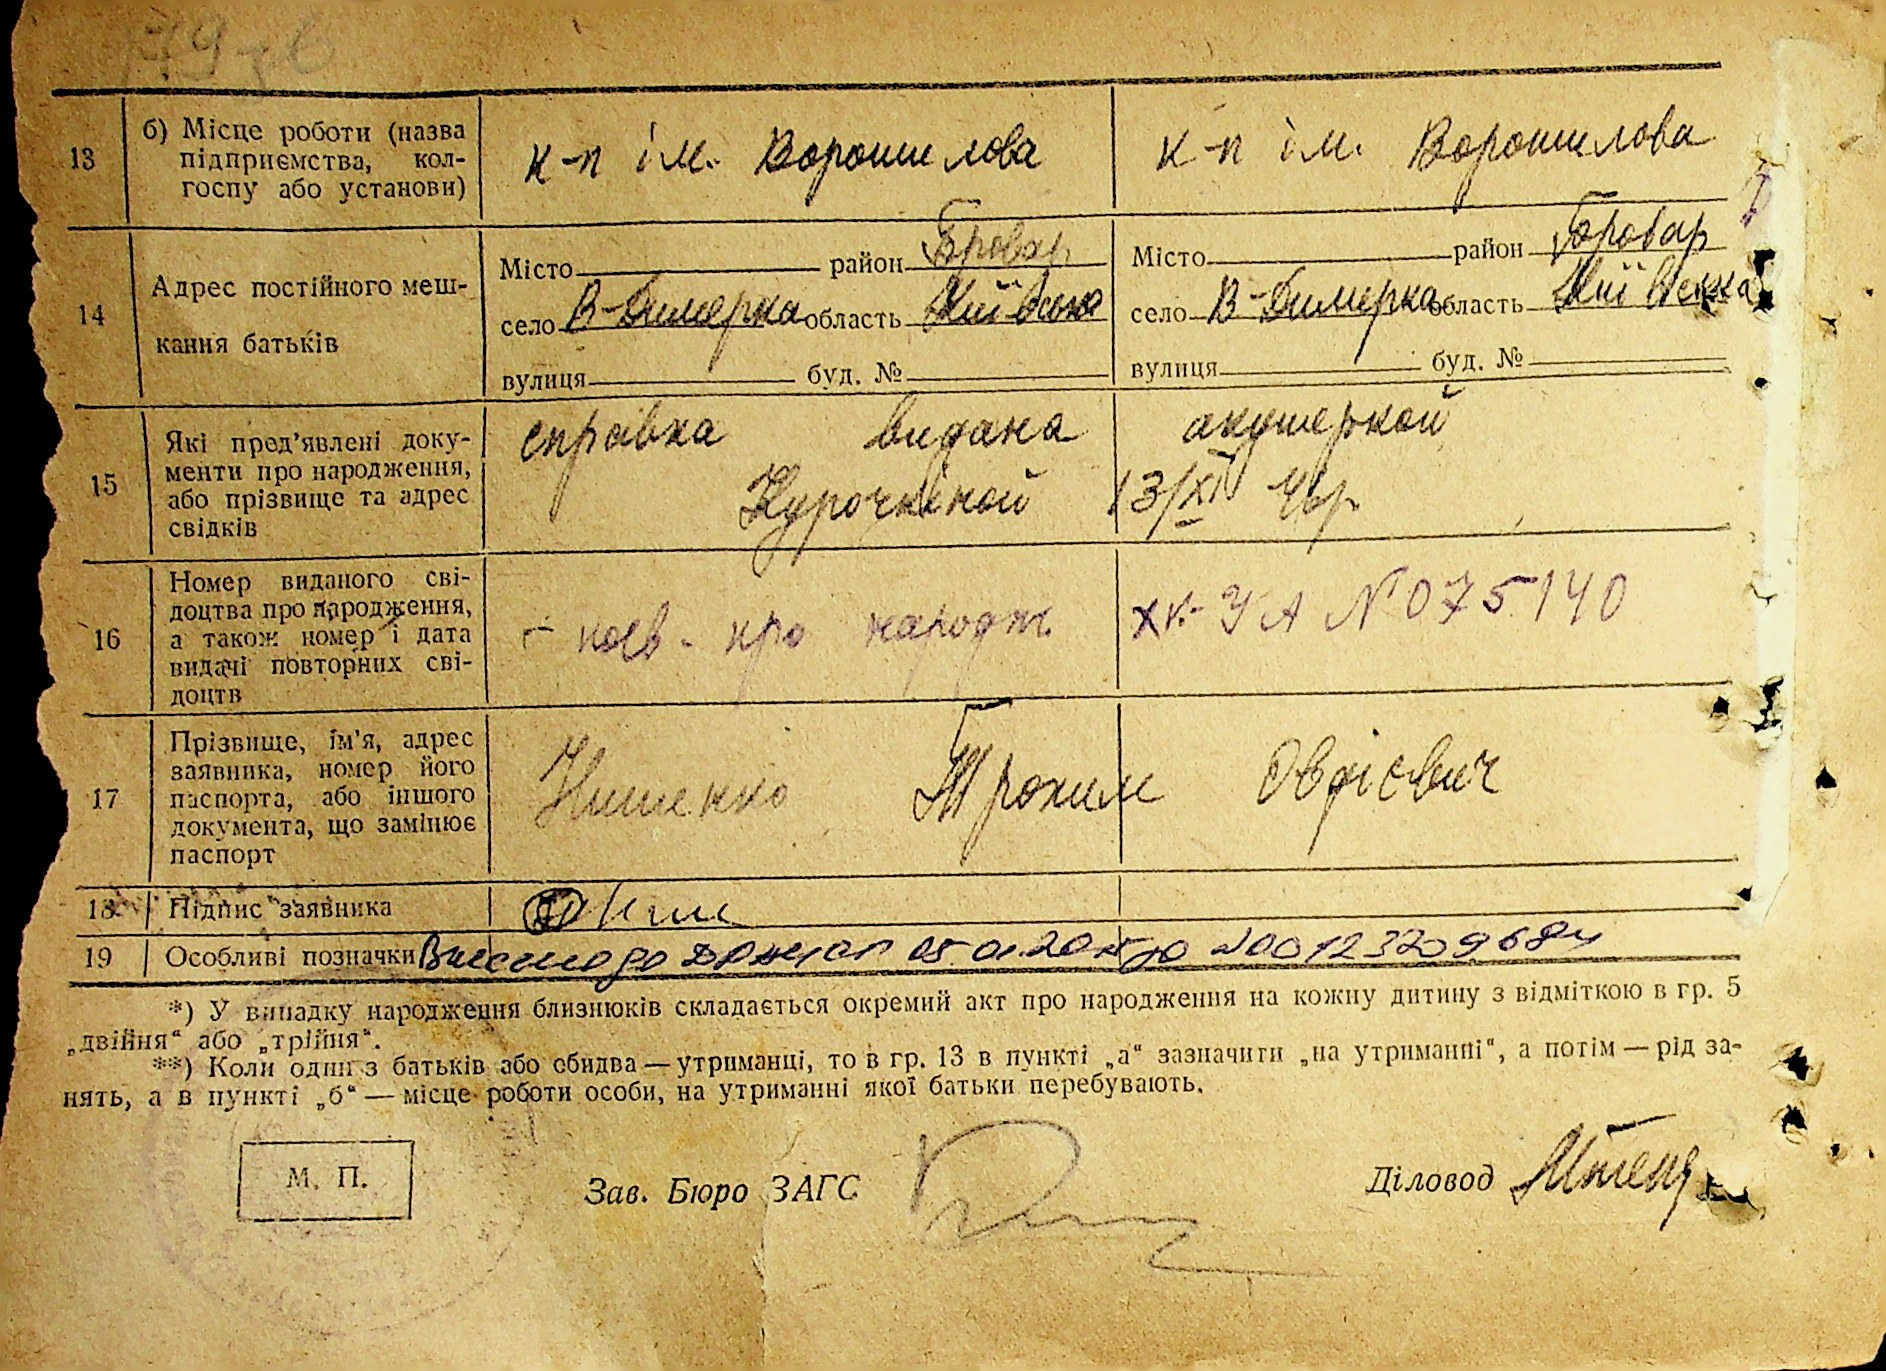 13 б) Місце роботи (назва підприємства, кол-
госпу або установи)
к-п ім. Ворошилова к-п ім. Ворошилова
14 Адрес постійного меш-
кання батьків
Місто район Бровар Місто район Бровар
село В-Димерка область Київська село В-Димерка область Київська
вулиця буд. № вулиця буд. №
15 Які пред'явлені доку-
менти про народження,
або прізвище та адрес
свідків
справка видана акушеркой
Курочкіной 13/XI
16 Номер виданого сві-
доцтва про народження,
а також номер і дата
видачі повторних сві-
доцтв
про народж. УА N 075140
17 Прізвище, ім'я, адрес
заявника, номер його
паспорта, або іншого
документа, що замінює
паспорт
Трохим Овдієвич
18 Підпис заявника
19 Особливі позначки Внесено до ДРАЦСГ 05.01.20 N00123209684
*) У випадку народження близнюків складається окремий акт про народження на кожну дитину з відміткою в гр. 5
„двійня“ або „трійня“.
**) Коли один з батьків або обидва — утриманці, то в гр. 13 в пункті „а“ зазначити „на утриманні“, а потім — рід за-
нять, а в пункті „б“ — місце роботи особи, на утриманні якої батьки перебувають.
М. П. Зав. Бюро ЗАГС Діловод